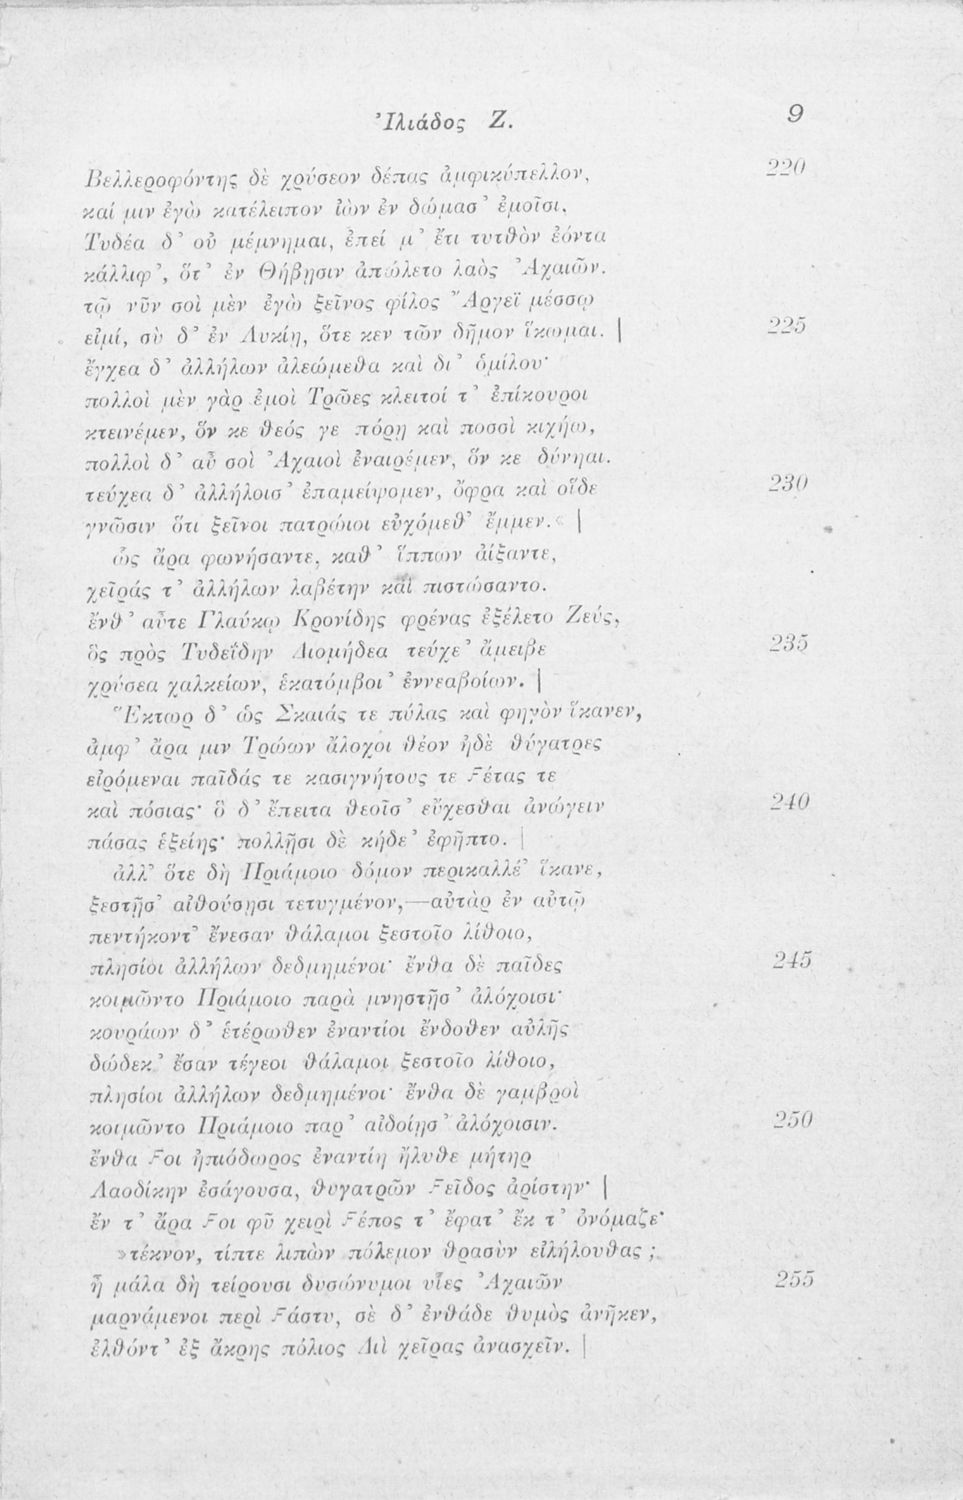 Ἰλιάδος Ζ. 9
Βελλεροφόντης δὲ χρύσεον δέπας ἀμφικύπελλον, 220
καί μιν ἐγὼ κατέλειπον ἰὼν ἐν δώμασ᾽ ἐμοῖσι.
Τυδέα δ᾽ οὐ μέμνημαι, ἐπεί μ᾽ ἔτι τυτθὸν ἐόντα
κάλλιφ᾽, ὅτ᾽ ἐν Θήβῃσιν ἀπώλετο λαὸς Ἀχαιῶν.
τῷ νῦν σοὶ μὲν ἐγὼ ξεῖνος φίλος Ἄργεϊ μέσσῳ
εἰμί, σὺ δ᾽ ἐν Λυκίῃ, ὅτε κεν τῶν δῆμον ἵκωμαι. | 225
ἔγχεα δ᾽ ἀλλήλων ἀλεώμεθα καὶ δι᾽ ὁμίλου·
πολλοὶ μὲν γὰρ ἐμοὶ Τρῶες κλειτοί τ᾽ ἐπίκουροι
κτεινέμεν, ὅν κε θεός γε πόρῃ καὶ ποσσὶ κιχήω,
πολλοὶ δ᾽ αὖ σοὶ Ἀχαιοὶ ἐναιρέμεν, ὅν κε δύνηαι.
τεύχεα δ᾽ ἀλλήλοισ᾽ ἐπαμείψομεν, ὄφρα καὶ οἵδε 230
γνῶσιν ὅτι ξεῖνοι πατρώιοι εὐχόμεθ᾽ ἔμμεν.« |
ὣς ἄρα φωνήσαντε, καθ᾽ ἵππων ἀίξαντε,
χεῖράς τ᾽ ἀλλήλων λαβέτην καὶ πιστώσαντο.
ἔνθ᾽ αὖτε Γλαύκῳ Κρονίδης φρένας ἐξέλετο Ζεύς,
ὃς πρὸς Τυδεΐδην Διομήδεα τεύχε᾽ ἄμειβε 235
χρύσεα χαλκείων, ἑκατόμβοι᾽ ἐννεαβοίων. |
Ἕκτωρ δ᾽ ὡς Σκαιάς τε πύλας καὶ φηγὸν ἵκανεν,
ἀμφ᾽ ἄρα μιν Τρώων ἄλοχοι θέον ἠδὲ θύγατρες
εἰρόμεναι παῖδάς τε κασιγνήτους τε Ϝέτας τε
καὶ πόσιας· ὃ δ᾽ ἔπειτα θεοῖσ᾽ εὔχεσθαι ἀνώγειν 240
πάσας ἑξείης· πολλῇσι δὲ κήδε᾽ ἐφῆπτο. |
ἀλλ᾽ ὅτε δὴ Πριάμοιο δόμον περικαλλέ᾽ ἵκανε,
ξεστῇσ᾽ αἰθούσῃσι τετυγμένον,—αὐτὰρ ἐν αὐτῷ
πεντήκοντ᾽ ἔνεσαν θάλαμοι ξεστοῖο λίθοιο,
πλησίοι ἀλλήλων δεδμημένοι· ἔνθα δὲ παῖδες 245
κοιμῶντο Πριάμοιο παρὰ μνηστῇσ᾽ ἀλόχοισι·
κουράων δ᾽ ἑτέρωθεν ἐναντίοι ἔνδοθεν αὐλῆς
δώδεκ᾽ ἔσαν τέγεοι θάλαμοι ξεστοῖο λίθοιο,
πλησίοι ἀλλήλων δεδμημένοι· ἔνθα δὲ γαμβροὶ
κοιμῶντο Πριάμοιο παρ᾽ αἰδοίῃσ᾽ ἀλόχοισιν. 250
ἔνθα Ϝοι ἠπιόδωρος ἐναντίη ἤλυθε μήτηρ
Λαοδίκην ἐσάγουσα, θυγατρῶν Ϝεῖδος ἀρίστην· |
ἔν τ᾽ ἄρα Ϝοι φῦ χειρὶ Ϝέπος τ᾽ ἔφατ᾽ ἔκ τ᾽ ὀνόμαζε·
»τέκνον, τίπτε λιπὼν πόλεμον θρασὺν εἰλήλουθας;
ἦ μάλα δὴ τείρουσι δυσώνυμοι υἷες Ἀχαιῶν 255
μαρνάμενοι περὶ Ϝάστυ, σὲ δ᾽ ἐνθάδε θυμὸς ἀνῆκεν,
ἐλθόντ᾽ ἐξ ἄκρης πόλιος Διὶ χεῖρας ἀνασχεῖν. |